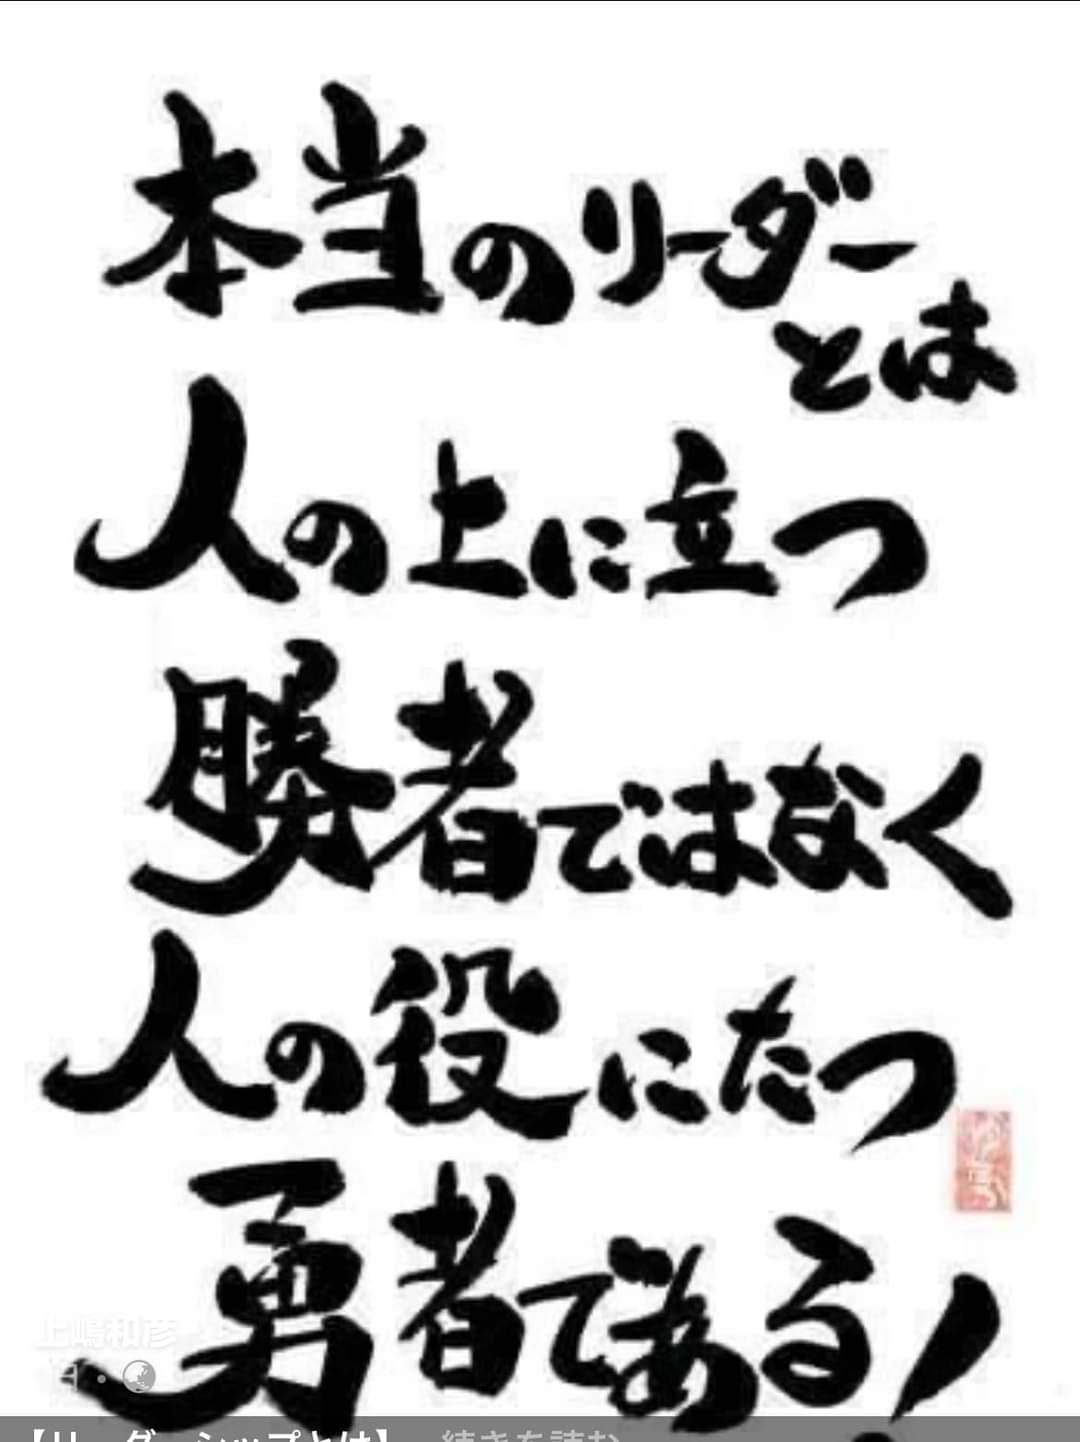 本当のリーダー
とは
人の上に立つ
勝者ではなく
人の役にたつ
勇者である!
上嶋和彦
【リーダーシップとは】 続きを読む